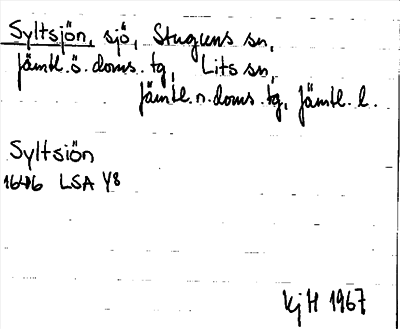 Syltsjön, sjö, Stuguns sn,
Jämtl. ö. doms. tg, Lits sn,
Jämtl. n. doms. tg, Jämtl. l.
Syltsiön
1646 LSA Y8
KjH 1967